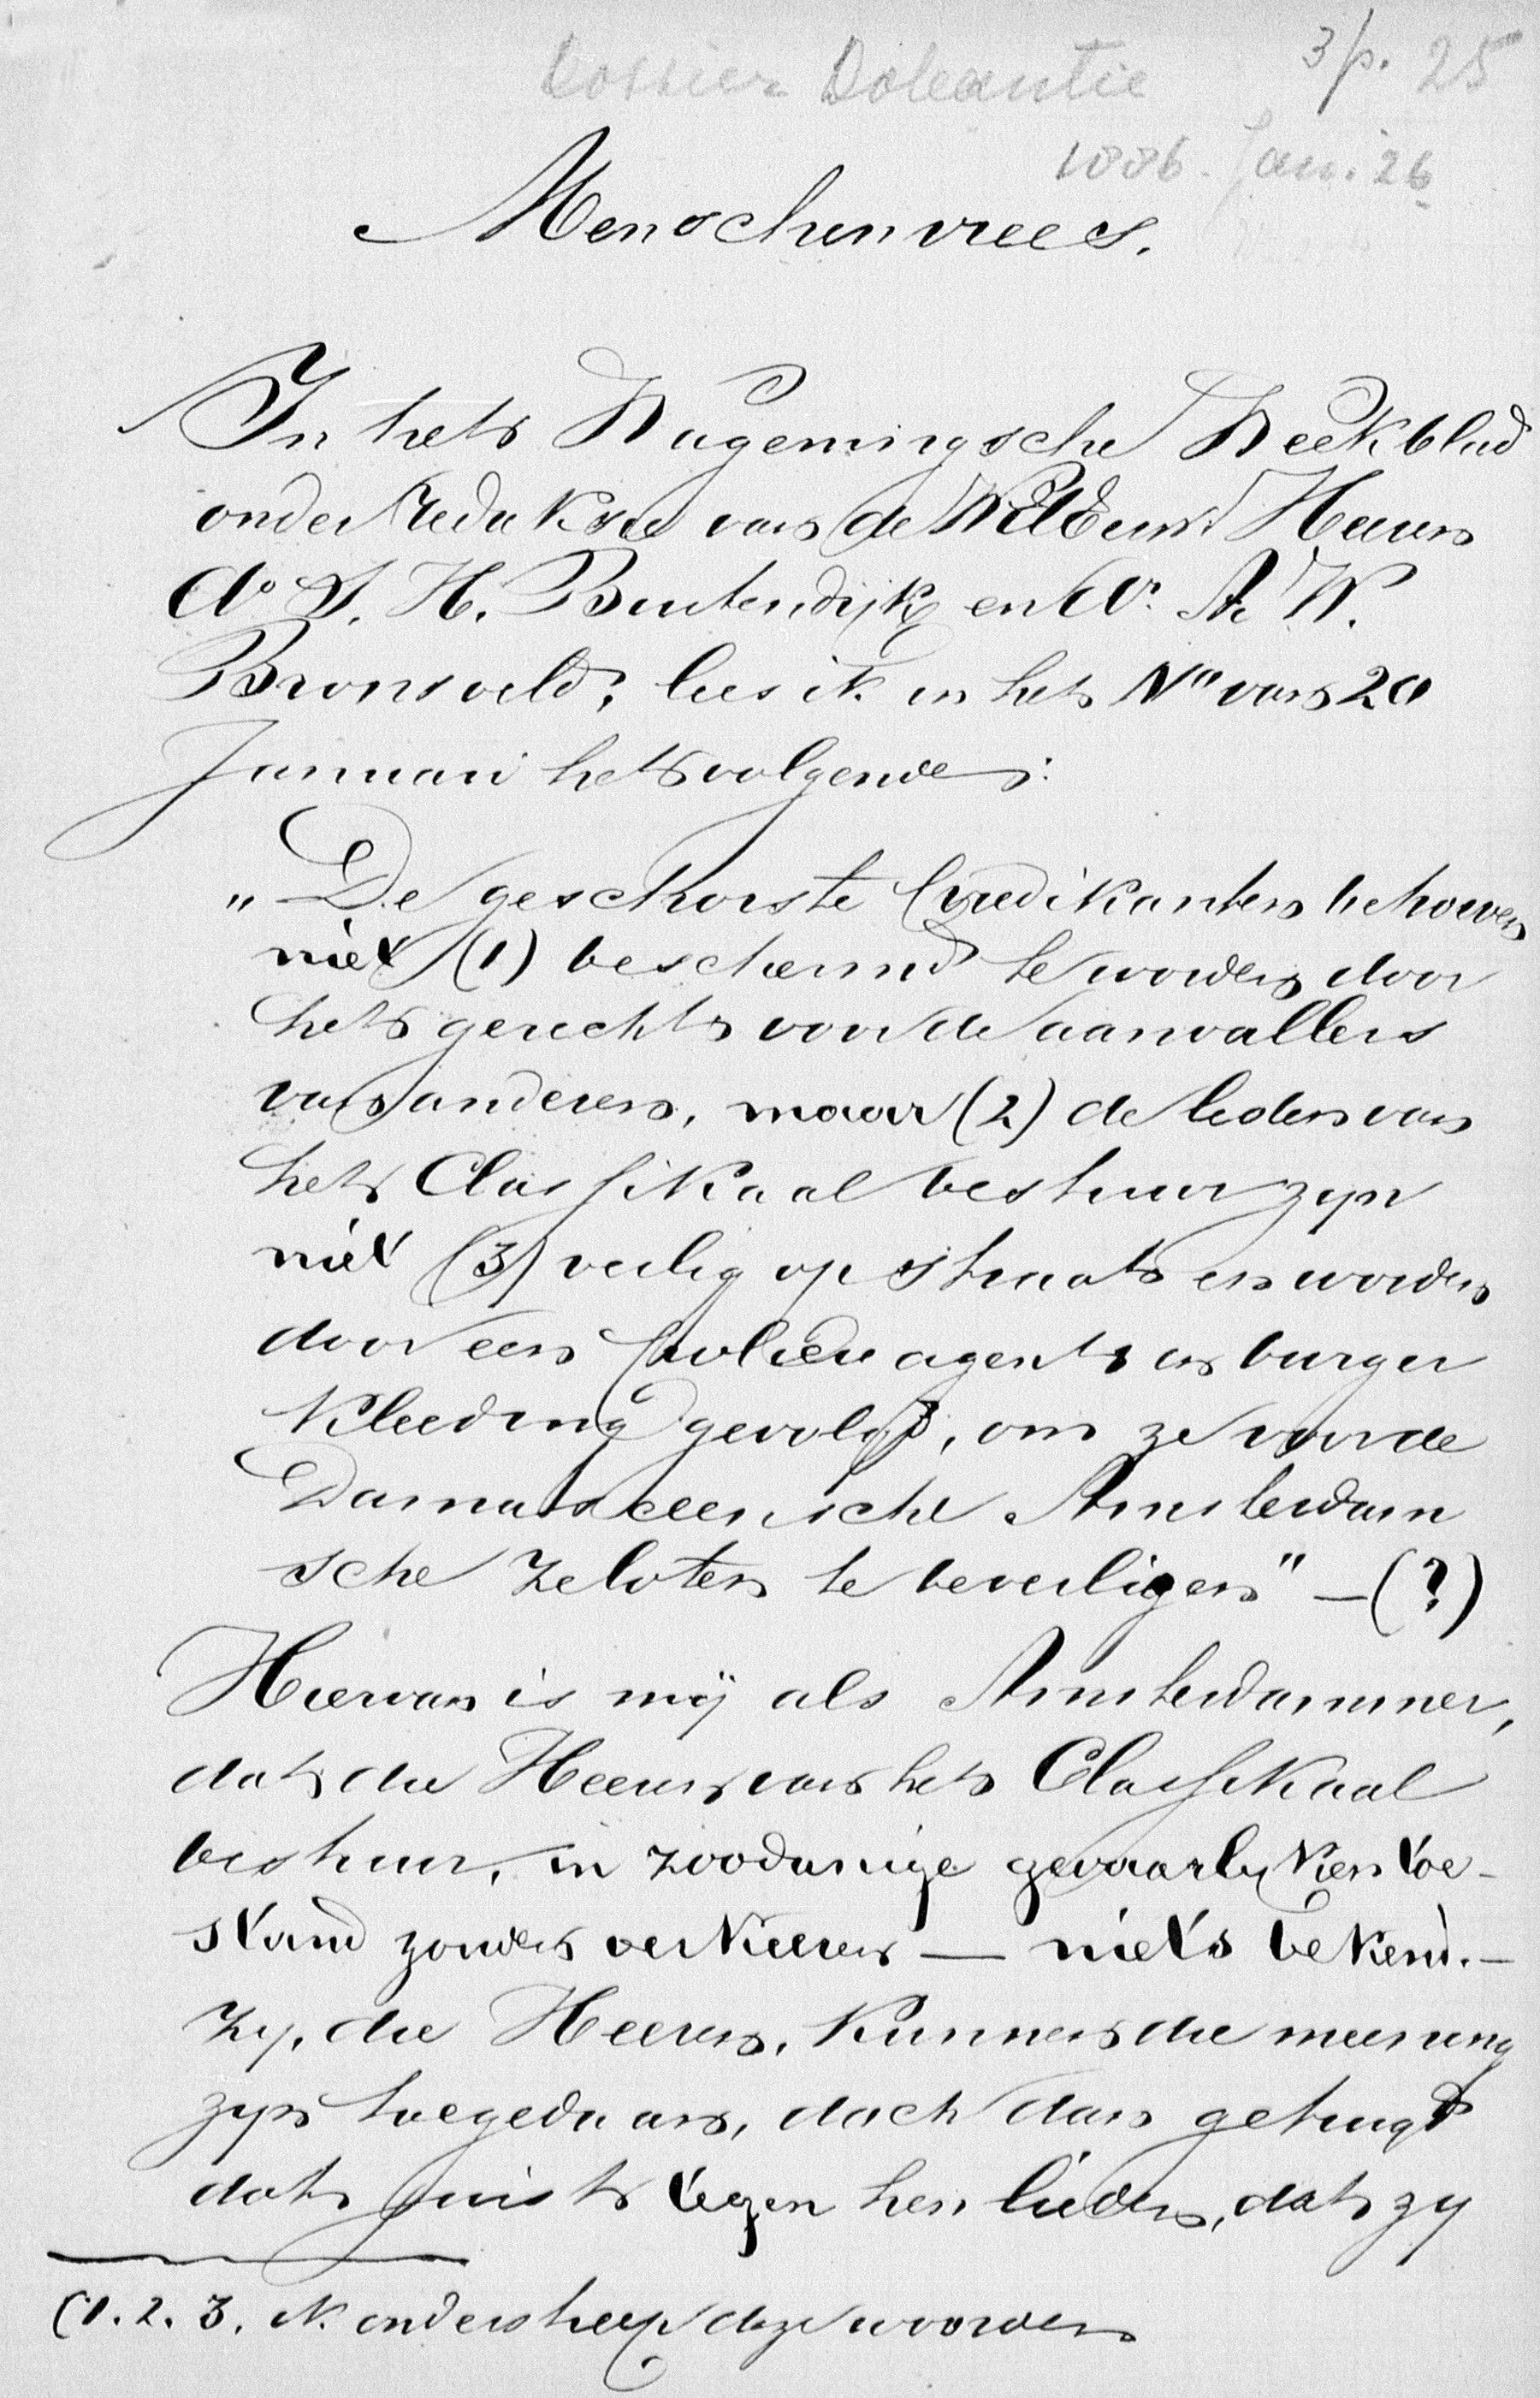 Dossier Doleantie 3p. 25
1886. Jan. 26
Menschenvrees.
In het Wageningsche Weekblad
onder redaksie van de WelEerw. Heeren
Ds. S. H. Buytendijk en Dr. A. W.
Bronsveld, lees ik in het No van 20
Januari het volgende:
„De geschorste Predikanten behoeven
niet (1) beschermd te worden door
het gerecht voor de aanvallers
van anderen, maar (2) de leden van
het Classikaal bestuur zyn
niet (3) veilig op straat en worden
door een politieagent in burger
kleeding gevolgd, om ze voor de
Damasceensche Amsterdam
sche Zeloten te beveiligen" – (?)
Hiervan is mij als Amsterdammer,
dat die Heeren van het Classikaal
bestuur, in zoodanige gevaarlyken toe-
stand zouden verkeeren — niets bekend. –
Zy, die Heeren, kunnen die meening
zyn toegedaan, doch dan getuigt
dat juist tegen hen lieden, dat zy
(1. 2. 3. Ik onderstreep deze woorden